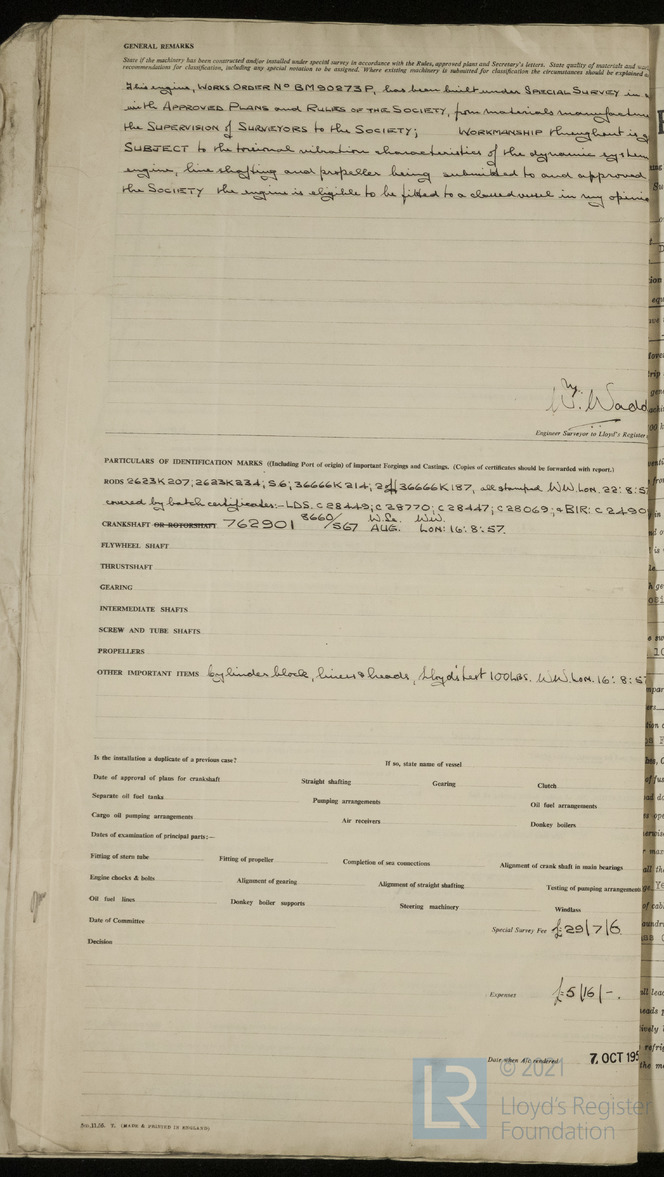 GENERAL REMARKS
State if the machinery has been constructed and/or installed under special survey in accordance with the Rules, approved plant and Secretary's letters. State quality of materials and
recommendations for classification, including any special notation to be assigned. Where existing machinery is submitted for classification the circumstances should be explained
This engine, WORKS ORDER No BM90273P, has been built under SPECIAL SURVEY in
with APPROVED PLANS and RULES OF THE SOCIETY, from materials
the SUPERVISION of SURVEYORS to the SOCIETY; WORKMANSHIP throughout is
SUBJECT to the torsional vibration characteristics of the dynamic system
engine, line shafting and propeller being submitted to and approved
the SOCIETY the engine is eligible to be fitted to a classed vessel in my
W. Wadd
Engineer Surveyor to Lloyd's Register
PARTICULARS OF IDENTIFICATION MARKS ((Including Port of origin) of important Forgings and Castings. (Copies of certificates should be forwarded with report.)
RODS 2623K207; 2623K234; S6; 36666K214; 2 off 36666K187, all stamped WW. LON. 22:8:5
covered by batch certificates:- LDS. C28449; C28770; C28447; C28069; & BIR: C2490
CRANKSHAFT OR ROTORSHAFT 762901 8660/567 W.Le. AUG. WW. LON: 16:8:57.
FLYWHEEL SHAFT
THRUSTSHAFT
GEARING
INTERMEDIATE SHAFTS
SCREW AND TUBE SHAFTS
PROPELLERS
OTHER IMPORTANT ITEMS Cylinder block, liners & heads, Lloyd's test 100 LBS. WW. LON. 16:8:5
Is the installation a duplicate of a previous case? If so, state name of vessel
Date of approval of plans for crankshaft Straight shafting Gearing Clutch
Separate oil fuel tanks Pumping arrangements Oil fuel arrangements
Cargo oil pumping arrangements Air receivers Donkey boilers
Dates of examination of principal parts:—
Fitting of stern tube Fitting of propeller Completion of sea connections Alignment of crank shaft in main bearings
Engine chocks & bolts Alignment of gearing Alignment of straight shafting Testing of pumping arrangements
Oil fuel lines Donkey boiler supports Steering machinery Windlass
Date of Committee Special Survey Fee £29/7/6
Decision
Expenses £5/16/-.
Date when A/c rendered 7. OCT 195
© 2021
LR
Lloyd's Register
Foundation
(MADE & PRINTED IN ENGLAND)